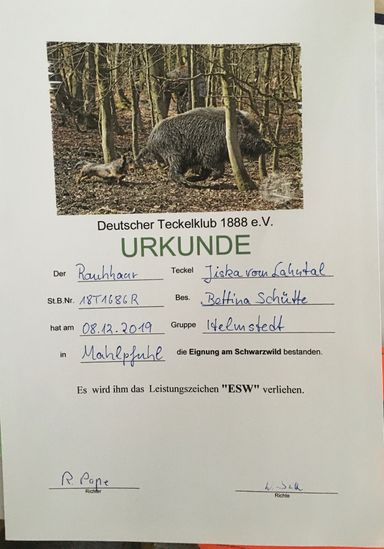 Deutscher Teckelklub 1888 e.V.
URKUNDE
Der Rauhhaar Teckel Jiska vom Lahntal
St.B.Nr. 18T1686R Bes. Bettina Schütte
hat am 08.12.2019 Gruppe Helmstedt
in Mahlpfuhl die Eignung am Schwarzwild bestanden.
Es wird ihm das Leistungszeichen "ESW" verliehen.
R. Pape
Richter Richte